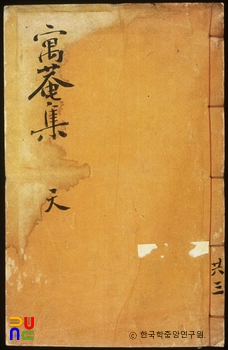 寓菴集 天
共三
© 한국학중앙연구원